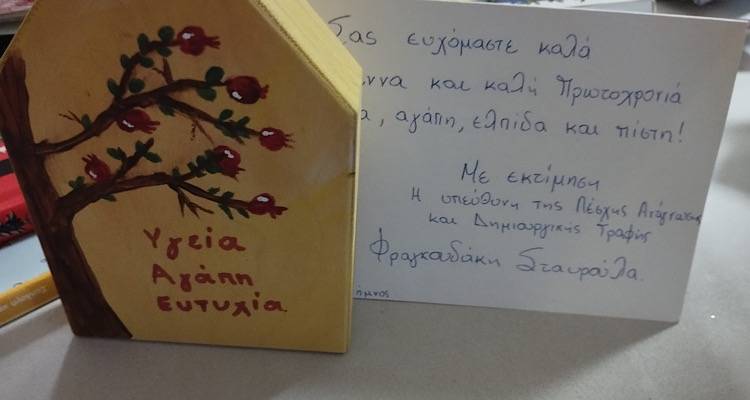 Υγεία
Αγάπη
Ευτυχία
Σας ευχόμαστε καλά
και καλή Πρωτοχρονιά
, αγάπη, ελπίδα και πίστη!
Με εκτίμηση
Η υπεύθυνη της Λέσχης Ανάγνωσης
και Δημιουργικής Γραφής
Φραγκαδάκη Σταυρούλα.